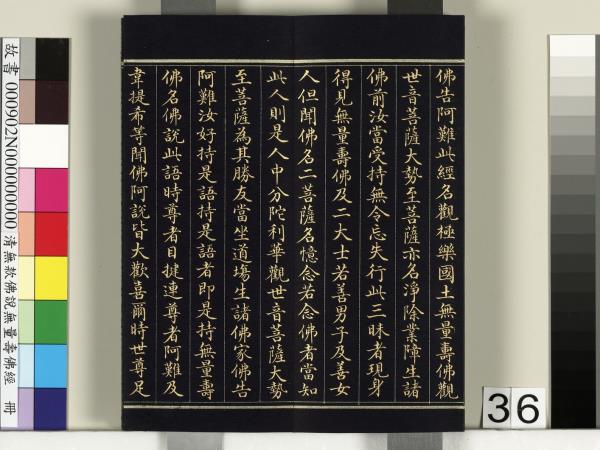 佛告阿難此經名觀極樂國土無量壽佛觀
世音菩薩大勢至菩薩亦名淨除業障生諸
佛前汝當受持無令忘失行此三昧者現身
得見無量壽佛及二大士若善男子及善女
人但聞佛名二菩薩名憶念若念佛者當知
此人則是人中分陀利華觀世音菩薩大勢
至菩薩為其勝友當坐道場生諸佛家佛告
阿難汝好持是語持是語者即是持無量壽
佛名佛說此語時尊者目揵連尊者阿難及
韋提希等聞佛所說皆大歡喜爾時世尊足
故書 000902N000000000 清無款佛說無量壽佛經 冊
36